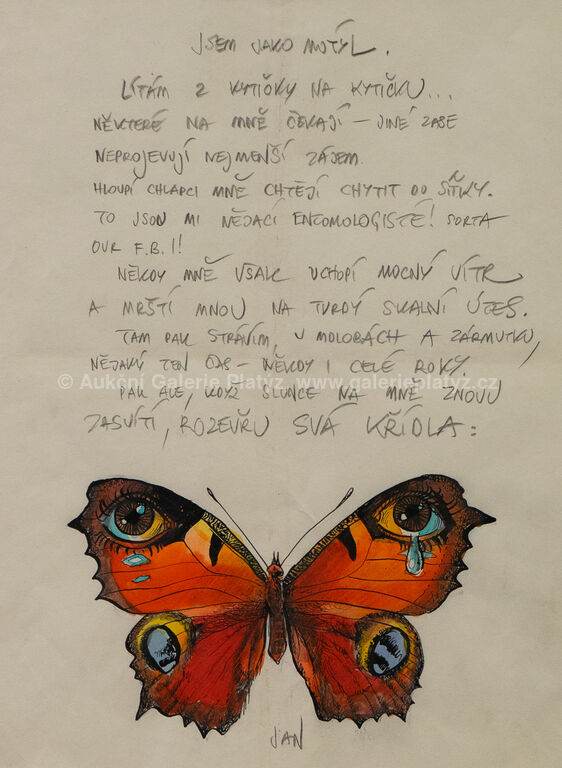 JSEM JAKO MOTÝL.
LÍTÁM Z KYTIČKY NA KYTIČKU...
NĚKTERÉ NA MNĚ ČEKAJÍ – JINÉ ZASE
NEPROJEVUJÍ NEJMENŠÍ ZÁJEM.
HLOUPÍ CHLAPCI MNĚ CHTĚJÍ CHYTIT DO SÍŤKY.
TO JSOU MI NĚJACÍ ENTOMOLOGISTÉ! SORTA
OUR F.B.I!
NĚKDY MNĚ VŠAK UCHOPÍ MOCNÝ VÍTR
A MRŠTÍ MNOU NA TVRDÝ SKALNÍ ÚTES.
TAM PAK STRÁVÍM, V MDLOBÁCH A ZÁRMUTKU,
NĚJAKÝ TEN ČAS – NĚKDY I CELÉ ROKY.
© Aukční Galerie Platýz, www.galerieplatyz.cz
PAK ALE, KDYŽ SLUNCE NA MNĚ ZNOVU
ZASVÍTÍ, ROZEVŘU SVÁ KŘÍDLA:
JAN